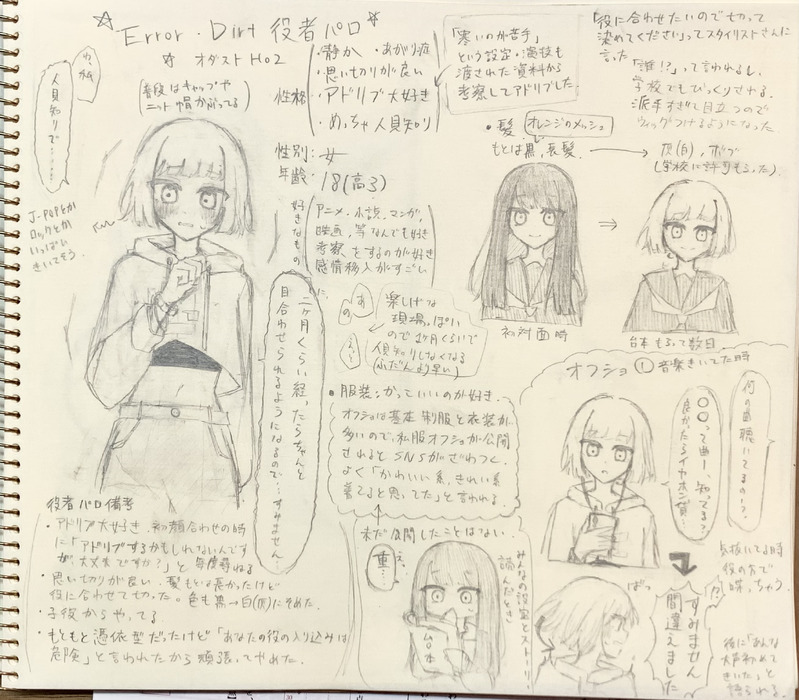 ☆Error・Dirt 役者パロ☆
オダスト Ho2
性格
・静か ・あがり症
・思い切りが良い
・アドリブ大好き
・めっちゃ人見知り
「寒いのが苦手」
という設定・演技も
渡された資料から
考察してアドリブした
「役に合わせたいので切って
染めてください」ってスタイリストさんに
言った
「誰!?」って言われるし、
学校でもびっくりされる。
派手すぎて目立つので
ウィッグつけるようになった
人見知りで……
普段はキャップや
ニット帽かぶってる
性別：女
年齢：18(高3)
好きなもの
アニメ・小説・マンガ、
映画、等なんでも好き
考察をするのが好き
感情移入がすごい
・髪 オレンジのメッシュ
もとは黒、長髪。
→
(白)、ボブ
(学校に許可もらった)
⇒
初対面時
台本もらって数日
J-POPとか
ロックとか
いっぱい
きいてそう
あ
の
え…
楽しげな
現場っぽい
ので1ヶ月くらいで
人見知りしなくなる
(ふだんより早い)
二ヶ月くらい経ったらちゃんと
目合わせられるようになるので…すみません…
・服装：かっていいのが好き。
オフショは基本制服と衣装が
多いので、私服オフショが公開
されるとSNSがざわつく。
よく「かわいい系、きれい系
着てると思ってた」と言われる。
オフショ① 音楽きいてた時
何の曲聴いてるの!?
〇〇って曲…知ってる?
良かったらイヤホン貸…
役者パロ備考
・アドリブ大好き、初顔合わせの時
に「アドリブするかもしれないんです
が、大丈夫ですか?」と毎度尋ねる
・思い切りが良い、髪もとは長かったけど
役に合わせて切った。色も黒→白に そめた。
・子役からやってる
・もともと憑依型だったけど「あなたの役の入り込みは
危険」と言われたから頑張ってやめた。
まだ公開したことはない。
みんなの設定とストーリー
読んだとき
え、
重…
台本
気抜いてる時
役の方で
喋っちゃう
ぱっ
!?
すみません
間違えました
後に「あんな
大声初めて
きいた」と
語られる。